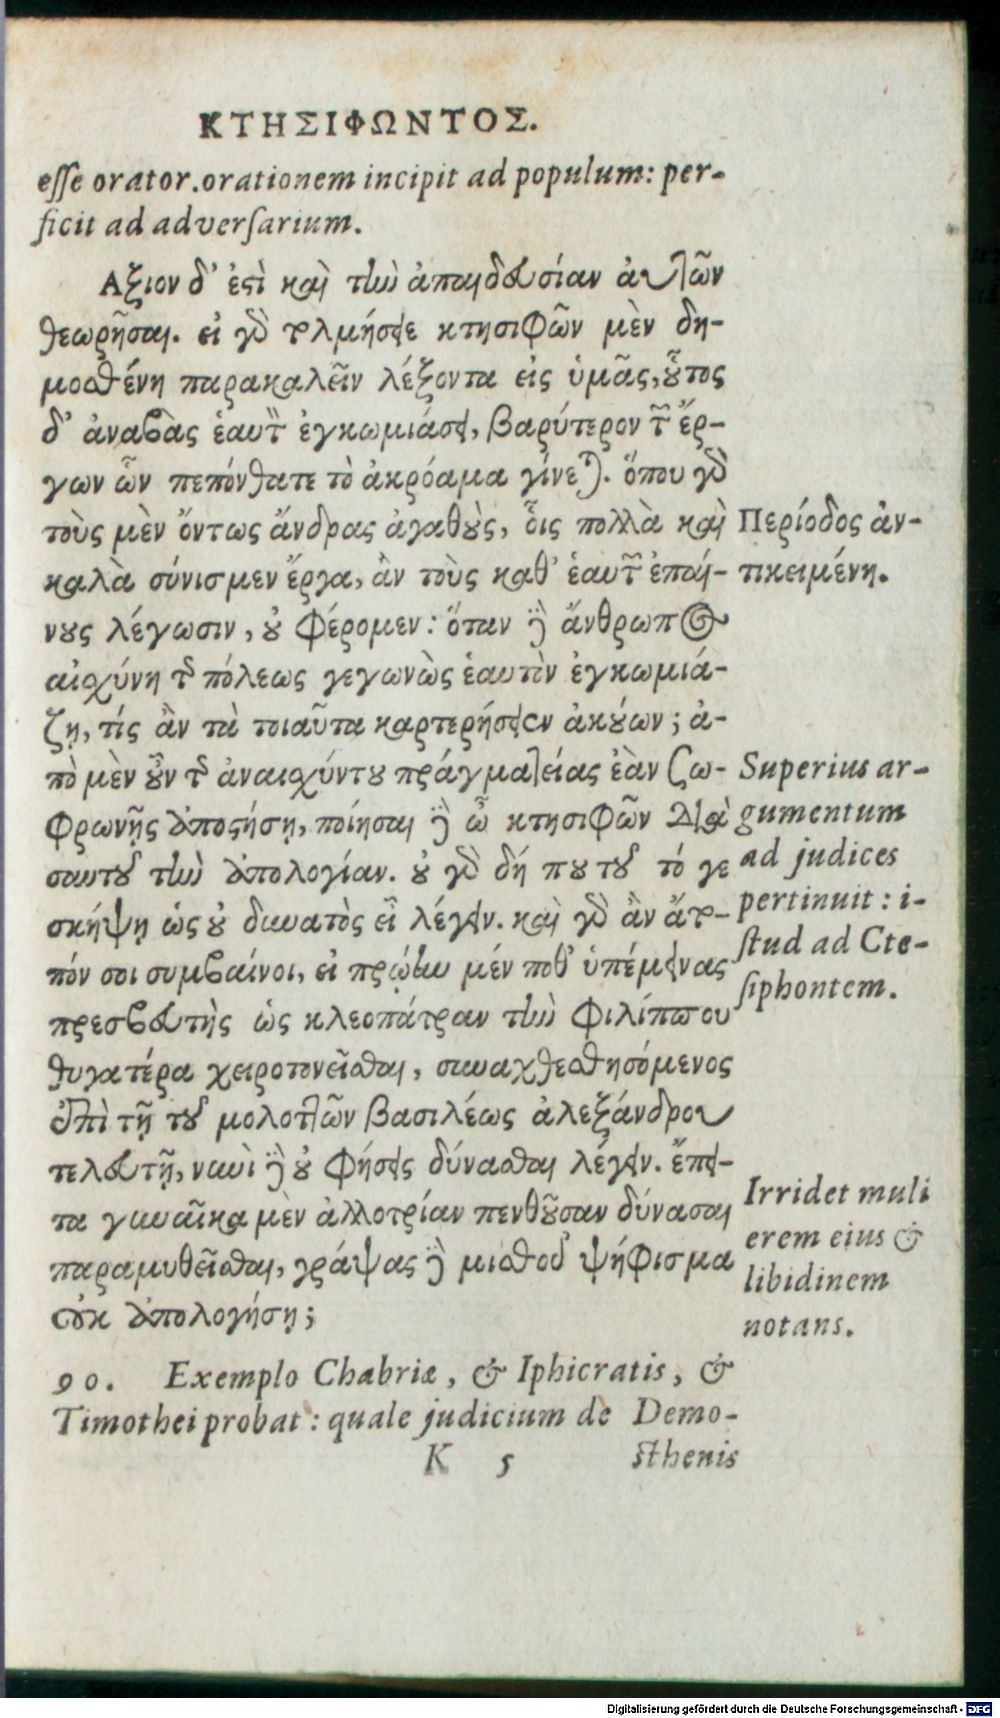 ΚΤΗΣΙΦΩΝΤΟΣ.
esse orator. orationem incipit ad populum: per-
ficit ad adversarium.
Αξιον δ' ἐςὶ καὶ τὴν ἀπαιδευσίαν αὐτῶν
θεωρῆσαι. εἰ γὸ τολμήσει κτησιφῶν μὲν δη-
μοσθένη παρακαλεῖν λέξοντα εἰς ὑμᾶς, οὗτος
δ' ἀναβὰς ἑαυτὸν ἐγκωμιάσει, βαρύτερον τῶν ἔρ-
γων ὧν πεπόνθατε τὸ ἀκρόαμα γίνεται. ὅπου γὸ
τοὺς μὲν ὄντως ἄνδρας ἀγαθοὺς, οἷς πολλὰ καὶ
καλὰ σύνισμεν ἔργα, ἂν τοὺς καθ' ἑαυτῶν ἐπαί-
νους λέγωσιν, οὐ φέρομεν: ὅταν δὲ ἄνθρωπος
αἰσχύνη τῆς πόλεως γεγωνὼς ἑαυτὸν ἐγκωμιά-
ζῃ, τίς ἂν τὰ τοιαῦτα καρτερήσειεν ἀκούων; ἀ-
πὸ μὲν οὖν τῆς ἀναισχύντου πραγματείας ἐὰν σω-
φρωνῇς ἀποςήσῃ, ποίησαι δὲ ὦ κτησιφῶν διὰ
σαυτοῦ τὴν ἀπολογίαν. οὐ γὸ δή που τοῦ τό γε
σκήψῃ ὡς οὐ δυνατὸς εἶ λέγειν. καὶ γὸ ἂν ἄτο-
πόν σοι συμβαίνοι, εἰ πρῴην μέν ποθ' ὑπέμεινας
πρεσβευτὴς ὡς κλεοπάτραν τὴν Φιλίππου
θυγατέρα χειροτονεῖσθαι, συναχθεσθησόμενος
ἐπὶ τῇ τοῦ μολοττῶν βασιλέως ἀλεξάνδρου
τελευτῇ, νυνὶ δὲ οὐ φήσεις δύνασθαι λέγειν. ἔπει-
τα γυναῖκα μὲν ἀλλοτρίαν πενθοῦσαν δύνασαι
παραμυθεῖσθαι, γράψας δὲ μισθοῦ ψήφισμα
οὐκ ἀπολογήσῃ;
Περίοδος ἀν-
τικειμένη.
Superius ar-
gumentum
ad judices
pertinuit: i-
stud ad Cte-
siphontem.
Irridet muli
erem eius &
libidinem
notans.
90. Exemplo Chabriæ, & Iphicratis, &
Timothei probat: quale judicium de Demo-
K 5 sthenis
Digitalisierung gefördert durch die Deutsche Forschungsgemeinschaft - DFG